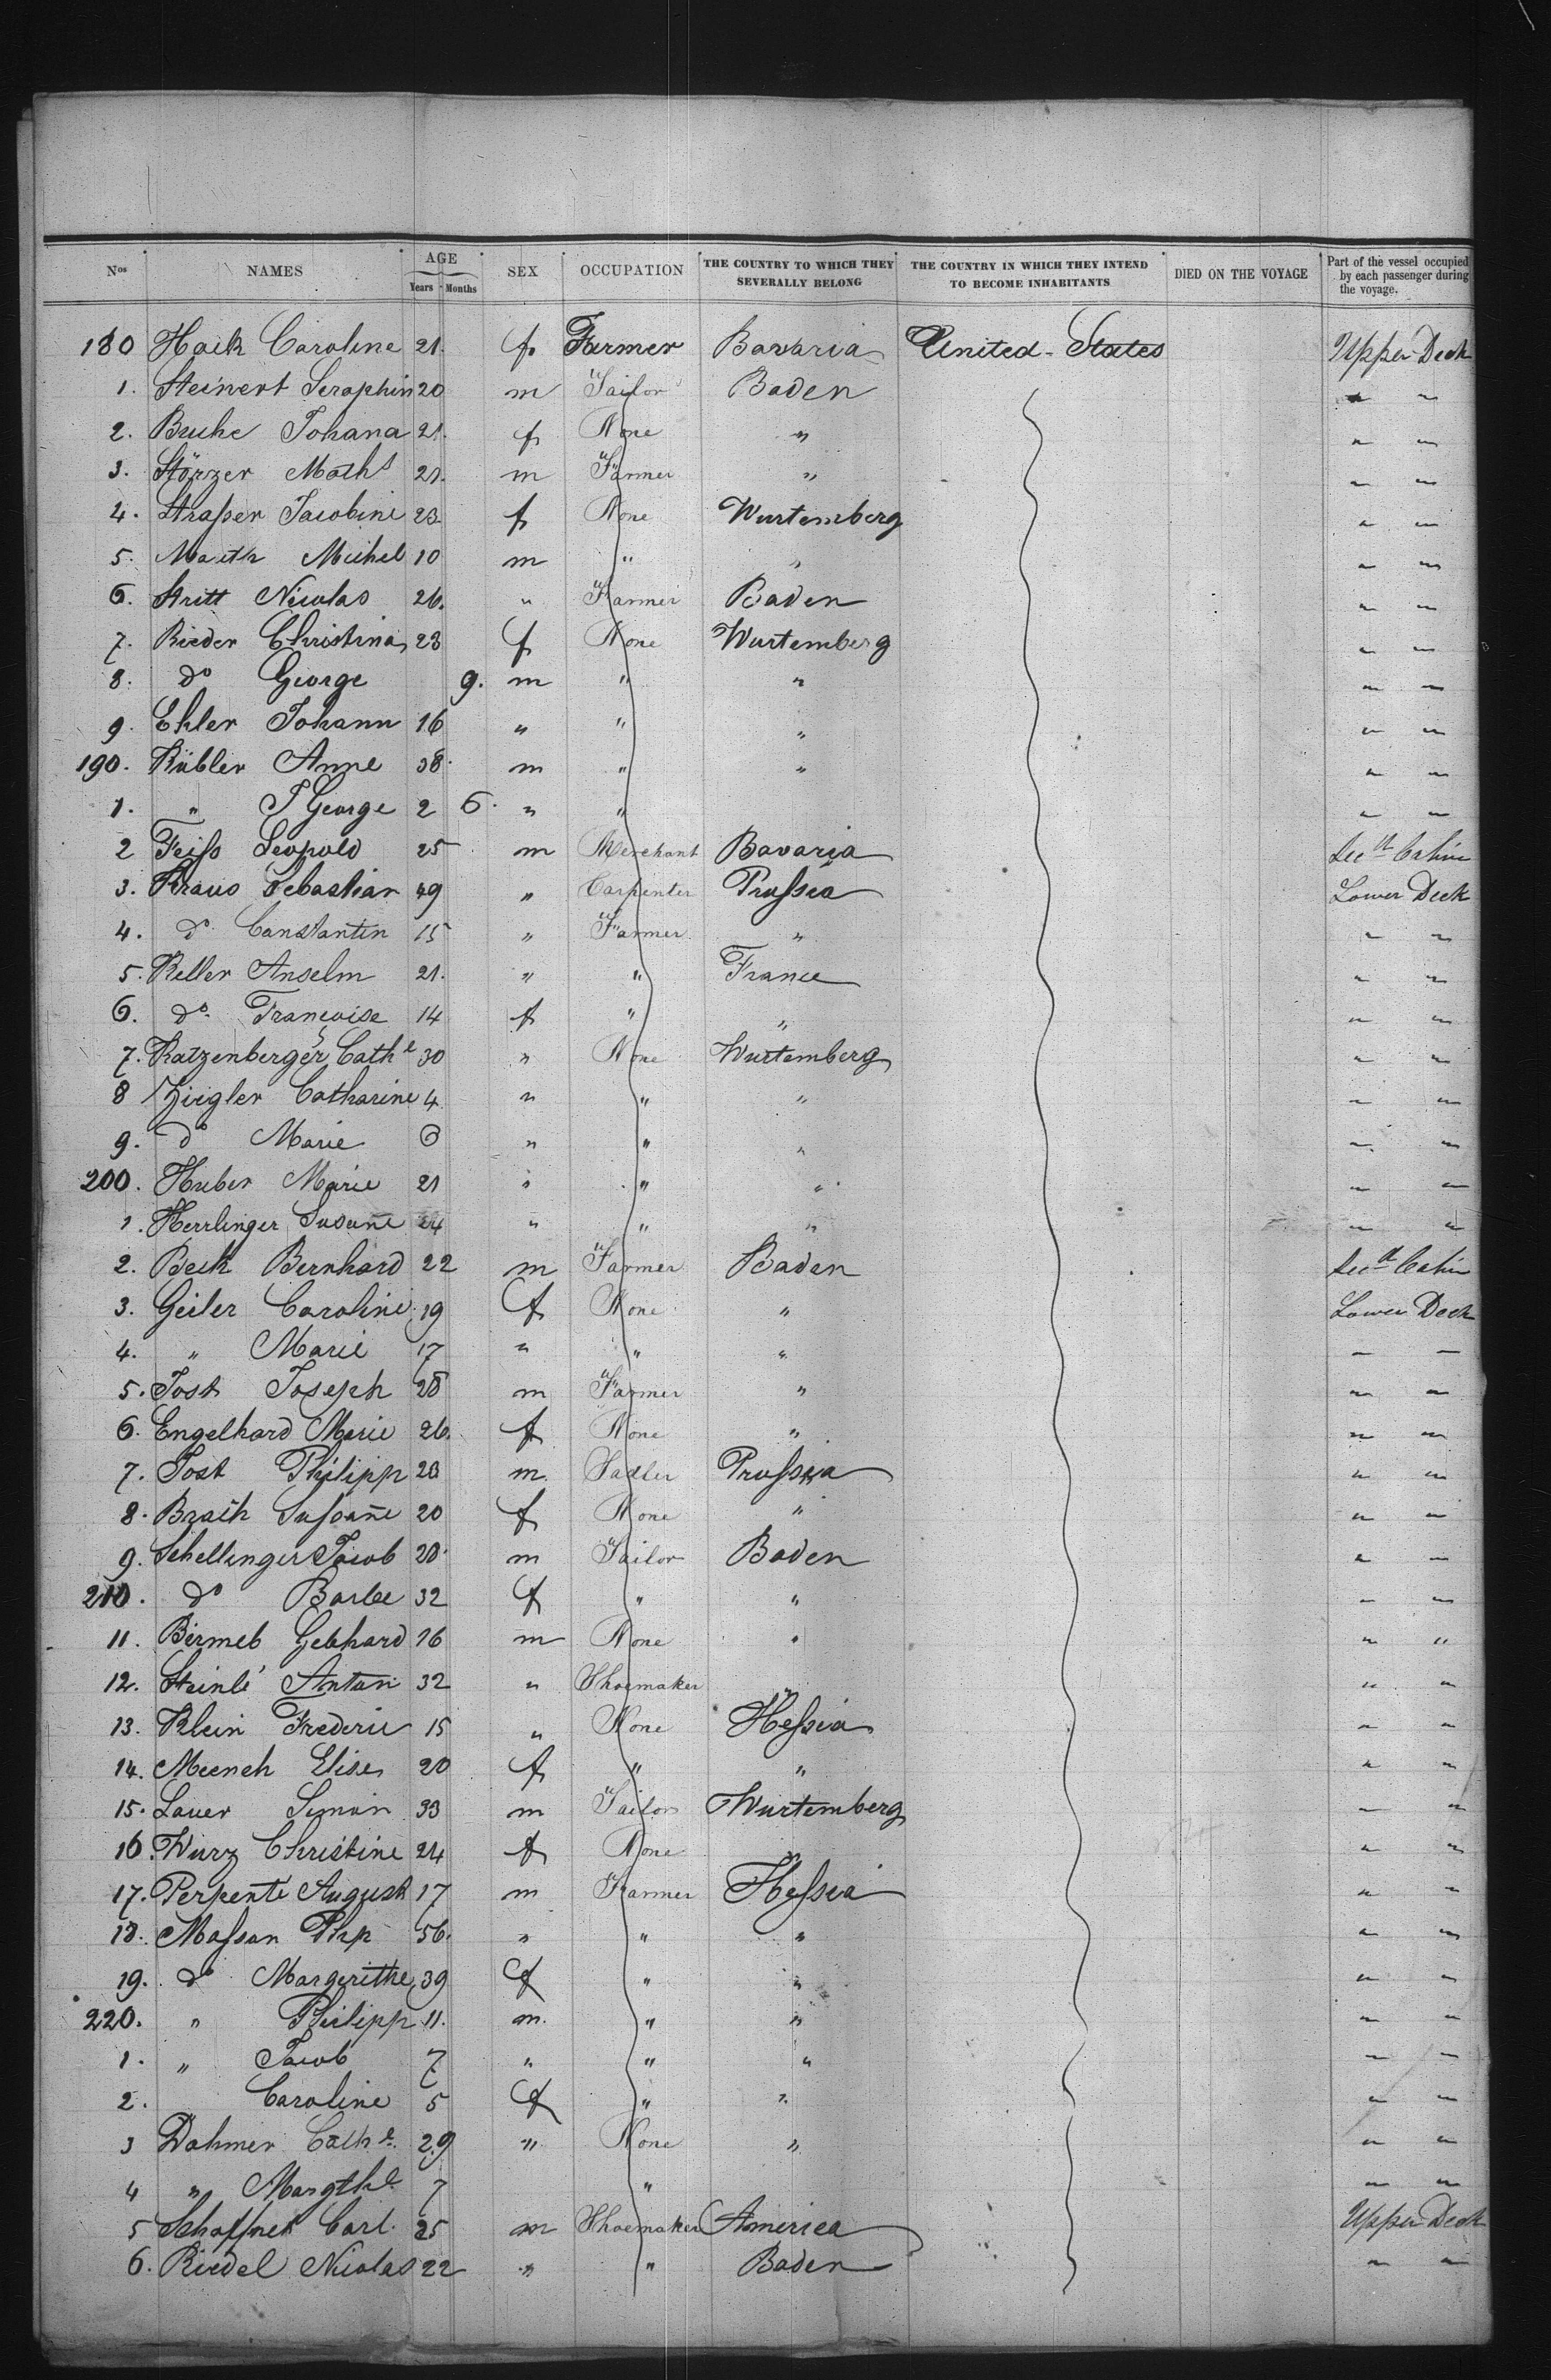 Nos NAMES AGE Years Months SEX OCCUPATION THE COUNTRY TO WHICH THEY SEVERALLY BELONG THE COUNTRY IN WHICH THEY INTEND TO BECOME INHABITANTS DIED ON THE VOYAGE Part of the vessel occupied by each passenger during the voyage.
180 Hack Caroline 21. f. Farmer Bavaria United-States Upper Deck
1. Steinert Seraphin 20 m Tailor Baden " "
2. Bruhe Johana 21. f None " " "
3. Störzer Maths 21. m Farmer " " "
4. Straßer Jacobine 23 f None Wurtemberg " "
5. Maith Michel 10 m " " " "
6. Stritt Nicolas 26. " Farmer Baden " "
7. Rieder Christina 23 f None Wurtemberg " "
8. do George 9. m " " " "
9. Ehler Johann 16 " " " " "
190. Kübler Anne 38. m " " " "
1. " J George 2 6. " " " "
2 Feiß Leopold 25 m Merchant Bavaria Secd Cabin
3. Kraus Sebastian 49 " Carpenter Prußia Lower Deck
4. do Constantin 15 " Farmer " " "
5. Keller Anselm 21. " " France " "
6. do Françoise 14 f " " " "
7. Katzenberger Cathe 30 " None Wurtemberg " "
8 Ziegler Catharine 4 " " " " "
9. do Marie 6 " " " " "
200. Huber Marie 21 " " " " "
1. Herrlinger Susane 24 " " " " "
2. Beck Bernhard 22 m Farmer Baden Secd Cabin
3. Geiler Caroline 19 f None " Lower Deck
4. " Marie 17 " " " " "
5. Jost Joseph 28 m Farmer " " "
6. Engelhard Marie 26. f None " " "
7. Jost Philipp 28 m. Sadler Prußia " "
8. Braih Sußañe 20 f None " " "
9. Schellinger Jacob 28. m Tailor Baden " "
210. do Barbe 32 f " " " "
11. Birmeb Gebhard 16 m None " " "
12. Steinlé Anton 32 " Shoemaker " "
13. Klein Frederic 15 " None Heßia " "
14. Meench Elise 20 f " " " "
15. Lauer Simon 33 m Tailor Wurtemberg " "
16. Wurz Christine 24 f None " "
17. Perpente August 17 m Farmer Heßia " "
18. Maßan Php 56. " " " " "
19. do Margerithe 39 f " " " "
220. " Philipp 11. m. " " " "
1. " Jacob 7 " " " " "
2. Caroline 5 f " " " "
3 Dahmer Cathe. 29 " None " " "
4 " Margthe 7 " " "
5 Schaffner Carl. 25 m Shoemaker America Upper Deck
6. Riedel Nicolas 22 " " Baden " "